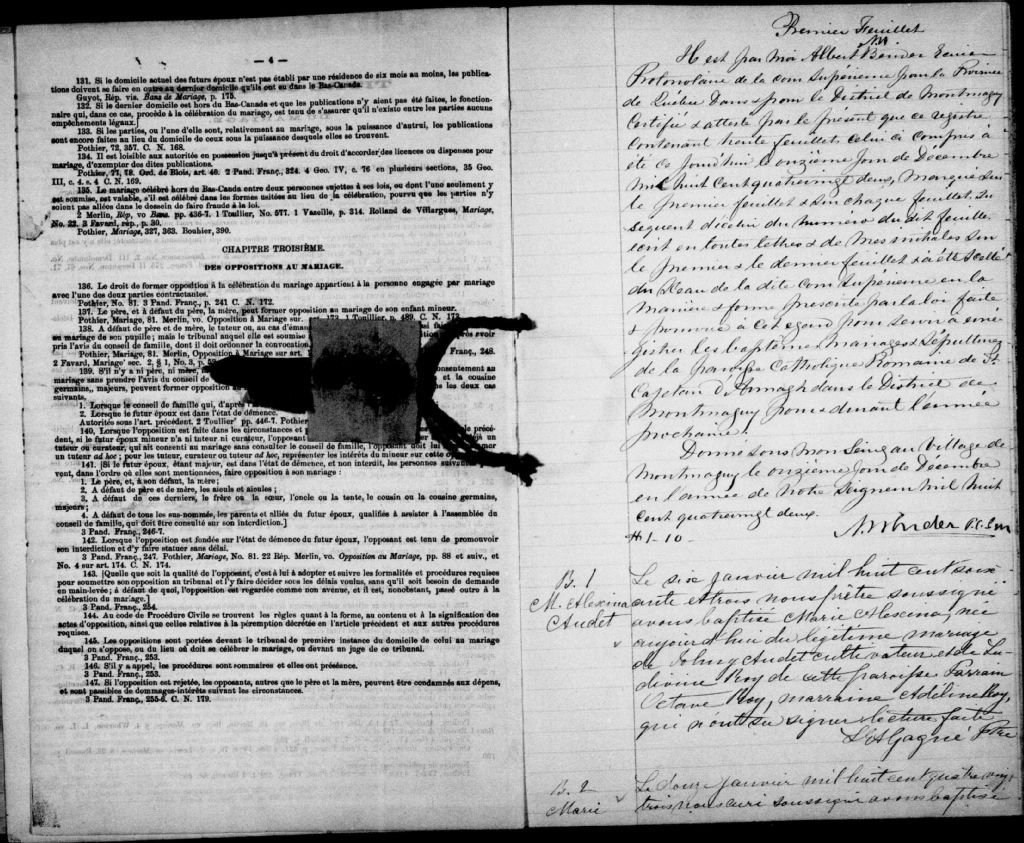 — 4 —
131. Si le domicile actuel des futurs époux n'est pas établi par une résidence de six mois au moins, les publica-
tions doivent se faire en outre au dernier domicile qu'ils ont eu dans le Bas-Canada.
Guyot, Rép. vis. Bans de Mariage, p. 175.
132. Si le dernier domicile est hors du Bas-Canada et que les publications n'y aient pas été faites, le fonction-
naire qui, dans ce cas, procède à la célébration du mariage, est tenu de s'assurer qu'il n'existe entre les parties aucuns
empêchements légaux.
133. Si les parties, ou l'une d'elle sont, relativement au mariage, sous la puissance d'autrui, les publications
sont encore faites au lieu du domicile de ceux sous la puissance desquels elles se trouvent.
Pothier, 72, 357. C. N. 168.
134. Il est loisible aux autorités en possession jusqu'à présent du droit d'accorder des licences ou dispenses pour
mariage, d'exempter des dites publications.
Pothier, 77, 78. Ord. de Blois, art. 40. 2 Pand. Franç., 324. 4 Geo. IV, c. 76 en plusieurs sections, 35 Geo.
III, c. 4. s. 4 C. N. 169.
135. Le mariage célébré hors du Bas-Canda entre deux personnes sujettes à ses lois, ou dont l'une seulement y
est soumise, est valable, s'il est célébré dans les formes usitées au lieu de la célébration, pourvu que les parties n'y
soient pas allées dans le dessein de faire fraude à la loi.
2 Merlin, Rép, vo Bans. pp. 436-7. 1 Toullier, No. 577. 1 Vazeille, p. 314. Rolland de Villargues, Mariage,
No. 22. 2 Favard, rép., p. 30.
Pothier, Mariage, 327, 363. Bouhier, 390.
CHAPITRE TROISIÈME.
DES OPPOSITIONS AU MARIAGE.
136. Le droit de former opposition à la célébration du mariage appartient à la personne engagée par mariage
avec l'une des deux parties contractantes.
Pothier, No. 81. 3 Pand. Franç., p. 241 C. N. 172.
137. Le père, et à défaut du père, la mère, peut former opposition au mariage de son enfant mineur.
Pothier, Mariage, 81. Merlin, vo. Opposition à Mariage sur. 172. 1 Toullier, p. 489. C. N. 173.
138. A défaut de père et de mère, le tuteur ou, au cas d'éman
au mariage de son pupille; mais le tribunal auquel elle est soumise avoir
pris l'avis du conseil de famille, dont il doit ordonner la convocation
Pothier, Mariage, 81. Merlin, Opposition à Mariage sur art. Franç., 248.
2 Favard, Mariage' sec. 2, § 1, No. 3, p.
139. S'il n'y a ni père, ni mère, consentement au
mariage sans prendre l'avis du conseil de et la cousine
germains, majeurs, peuvent former opposition les deux cas
suivants,
1. Lorsque le conseil de famille qui, d'après
2. Lorsque le futur époux est dans l'état de démence.
Autorités sous l'art. précédent. 2 Toullier' pp. 446-7. Pothier
140. Lorsque l'opposition est faite dans les circonstances et le précé-
dent, si le futur époux mineur n'a ni tuteur ni curateur, l'opposant un
tuteur ou curateur, qui ait consenti au mariage sans consulter le conseil de famille, l'opposant doit lui
un tuteur ad hoc; pour les tuteur, curateur ou tuteur ad hoc, représenter les intérêts du mineur sur cette
141. [Si le futur époux, étant majeur, est dans l'état de démence, et non interdit, les personnes suivantes
vent, dans l'ordre où elles sont mentionnées, faire opposition à son mariage:
1. Le père, et, à son défaut, la mère;
2. A défaut de père et de mère, les aïeuls et aïeules;
3. A défaut de ces derniers, le frère ou la sœur, l'oncle ou la tante, le cousin ou la cousine germains,
majeurs;
4. A défaut de tous les sus-nommés, les parents et alliés du futur époux, qualifiés à assister à l'assemblée du
conseil de famille, qui doit être consulté sur son interdiction.]
3 Pand. Franç., 246-7.
142. Lorsque l'opposition est fondée sur l'état de démence du futur époux, l'opposant est tenu de promouvoir
son interdiction et d'y faire statuer sans délai.
3 Pand. Franç., 247. Pothier, Mariage, No. 81. 22 Rép. Merlin, vo. Opposition au Mariage, pp. 88 et suiv., et
No. 4 sur art. 174. C. N. 174.
143. [Quelle que soit la qualité de l'opposant, c'est à lui à adopter et suivre les formalités et procédures requises
pour soumettre son opposition au tribunal et l'y faire décider sous les délais voulus, sans qu'il soit besoin de demande
en main-levée; à défaut de quoi, l'opposition est regardée comme non avenue, et il est, nonobstant, passé outre à la
célébration du mariage.]
3 Pand. Franç., 254.
144. Au code de Procédure Civile se trouvent les règles quant à la forme, au contenu et à la signification des
actes d'opposition, ainsi que celles relatives à la péremption décrétée en l'article précédent et aux autres procédures
requises.
145. Les oppositions sont portées devant le tribunal de première instance du domicile de celui au mariage
duquel on s'oppose, ou du lieu où doit se célébrer le mariage, ou devant un juge de ce tribunal.
3 Pand. Franç., 253.
146. S'il y a appel, les procédures sont sommaires et elles ont préséance.
3 Pand. Franç., 253.
147. Si l'opposition est rejetée, les opposants, autres que le père et la mère, peuvent être condamnés aux dépens,
et sont passibles de dommages-intérêts suivant les circonstances.
3 Pand. Franç., 255-6. C. N. 179.
Premier Feuillet
Il est par moi Albert Bender Ecuier
Protonotaire de la cour Supérieure pour la Province
de Québec Dans & pour le District de Montmagny
Certifié & attesté par le présent que ce registre
contenant trente feuillets celui ci compris a
été ce Jourd'hui le onzième jour de Décembre
Mil huit Cent quatrevingt deux, marqué sur
le premier feuillet & sur chaque feuillet su
sequent d'icelui du numéro du dit feuillet
écrit en toutes lettres & de mes initiales sur
le premier & le dernier feuillet & a été scellé
du Sceau de la dite cour Supérieure en la
manière & forme prescrite par la loi faite
& pourvue à cet egard pour servir à enré
gistrer les baptêmes mariages & Sépultures
de la paroisse Catholique Romaine de St
Cajetan D'Armagh dans le District de
Montmagny pour & durant l'année
prochaine.
Donné sous mon Seing au village de
Montmagny le onzième jour de Décembre
en l'année de notre Seigneur Mil huit
Cent quatrevingt deux.
A. Bender P.C.S.M
#1-10-
B. 1
M. Alexina
Audet
Le six janvier mil huit cent soix
ante et trois nous prêtre soussigné
avons baptisé Marie Alexina, née
aujourd'hui du légitime mariage
de Johny Audet cultivateur et de Lu
divine Roy de cette paroisse Parrain
Octave Roy, marraine Adeline Roy,
qui n'ont su signer lecture faite
Gagné Ptre
B. 2
Marie
Le douze janvier mil huit cent quatre ving
trois nous curé soussigné avons baptisé